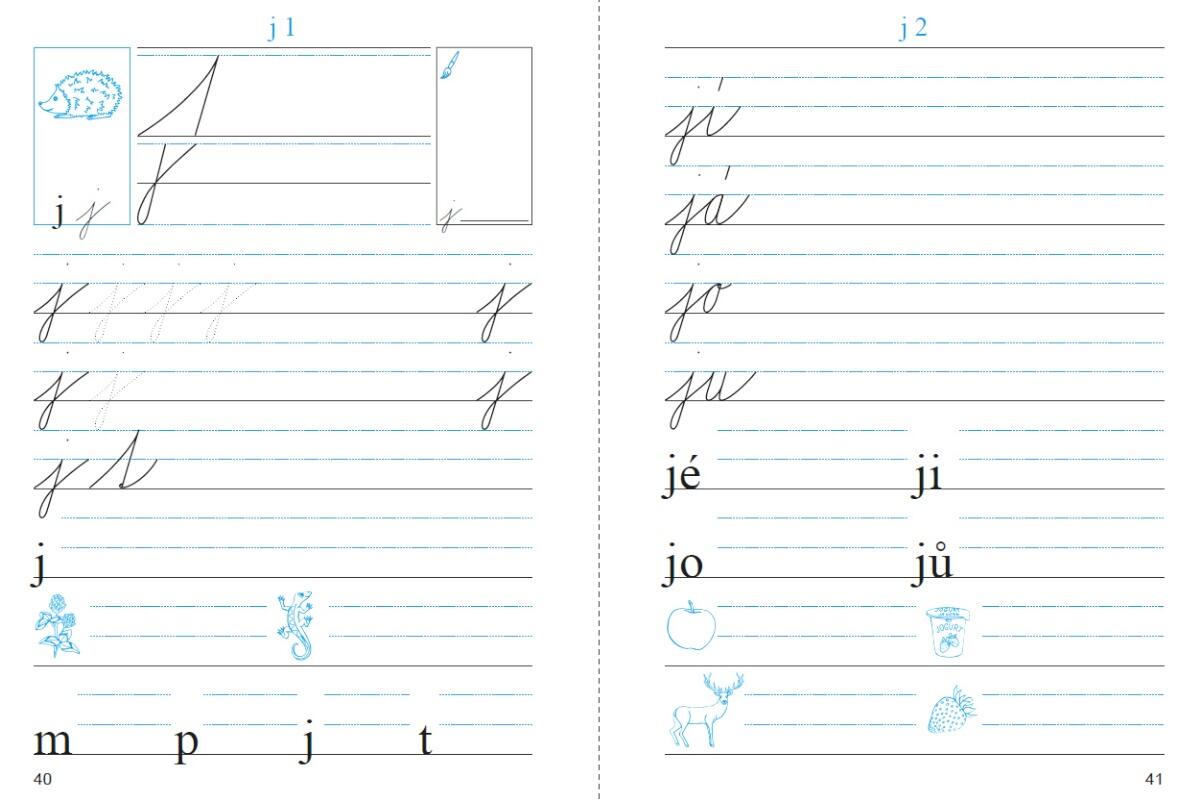 j 1
j j j
j j j j j
j j j
j s
j
m p j t
40
j 2
jí
já
jo
ju
jé ji
jo jů
JOGURT
JOGURT
41